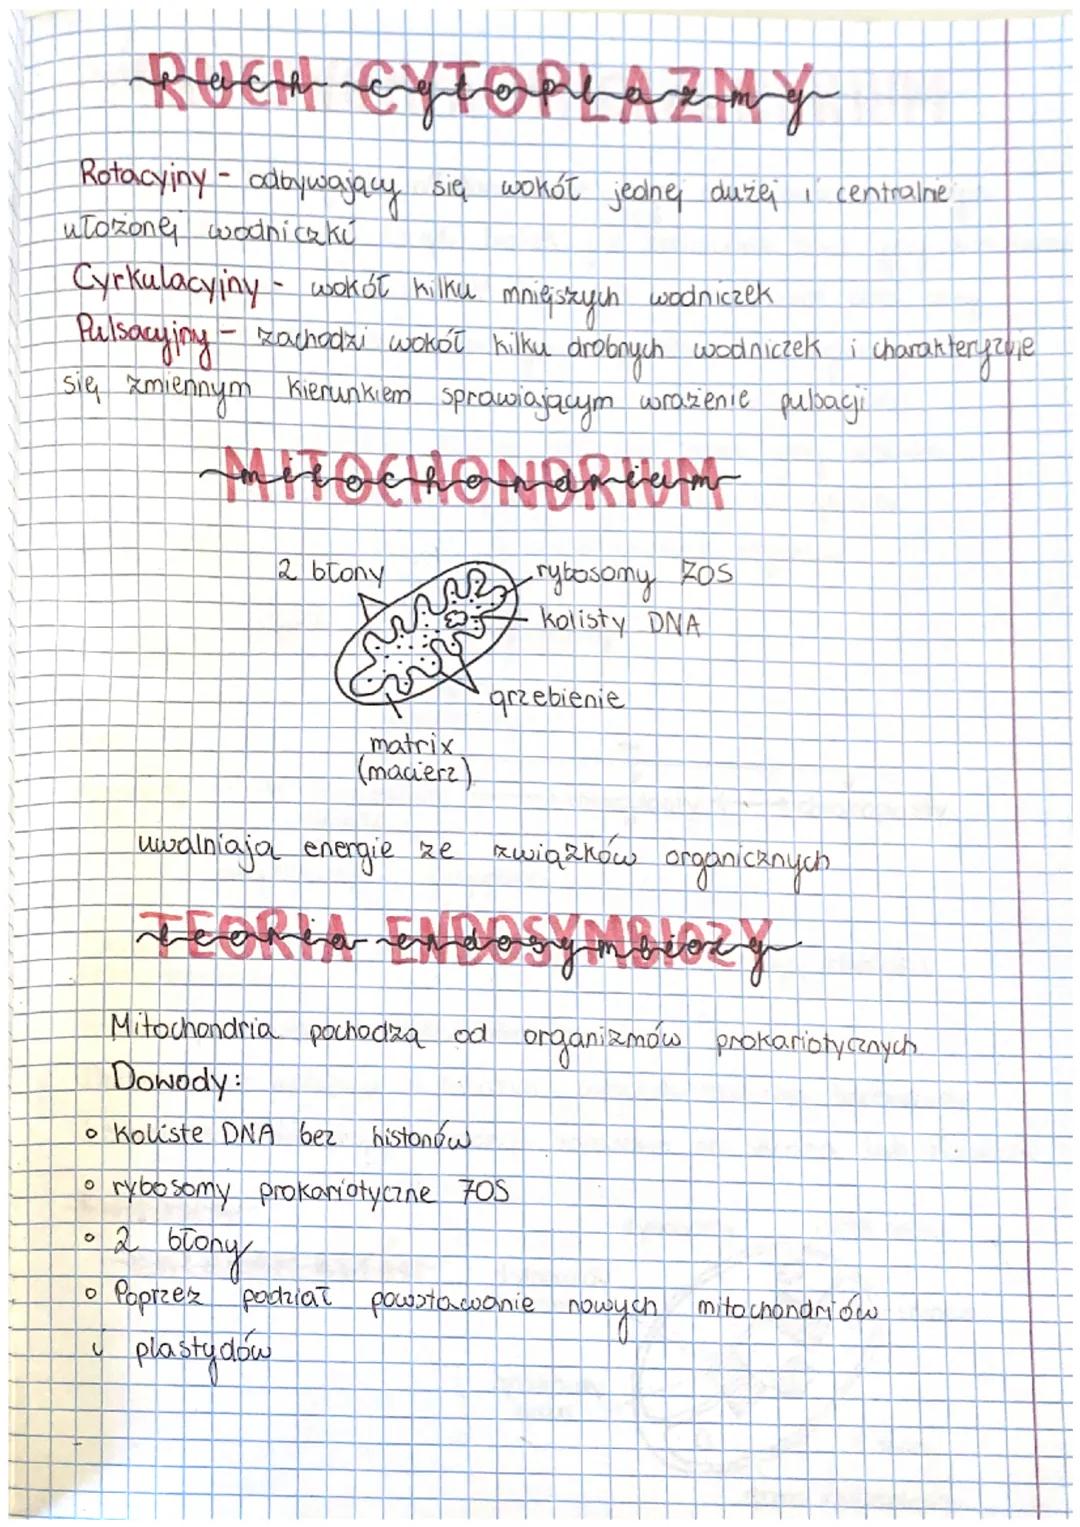 RUCH CYTOPLAZMY
Rotacyjny - odbywający się wokół jednej dużej i centralnie
ułożonej wodniczki
Cyrkulacyjny - wokół kilku mniejszych wodniczek
Pulsacyjny - zachodzi wokół kilku drobnych wodniczek i charakteryzuje
się zmiennym kierunkiem sprawiającym wrażenie pulsacji
MITOCHONDRIUM
2 błony
rybosomy 70S
kolisty DNA
grzebienie
matrix
(macierz)
uwalniają energie ze związków organicznych
TEORIA ENDOSYMBIOZY
Mitochondria pochodzą od organizmów prokariotycznych
Dowody:
o Koliste DNA bez histonów
o rybosomy prokariotyczne 70S
o 2 błony
o Poprzez podział powstawanie nowych mitochondriów
i plastydów